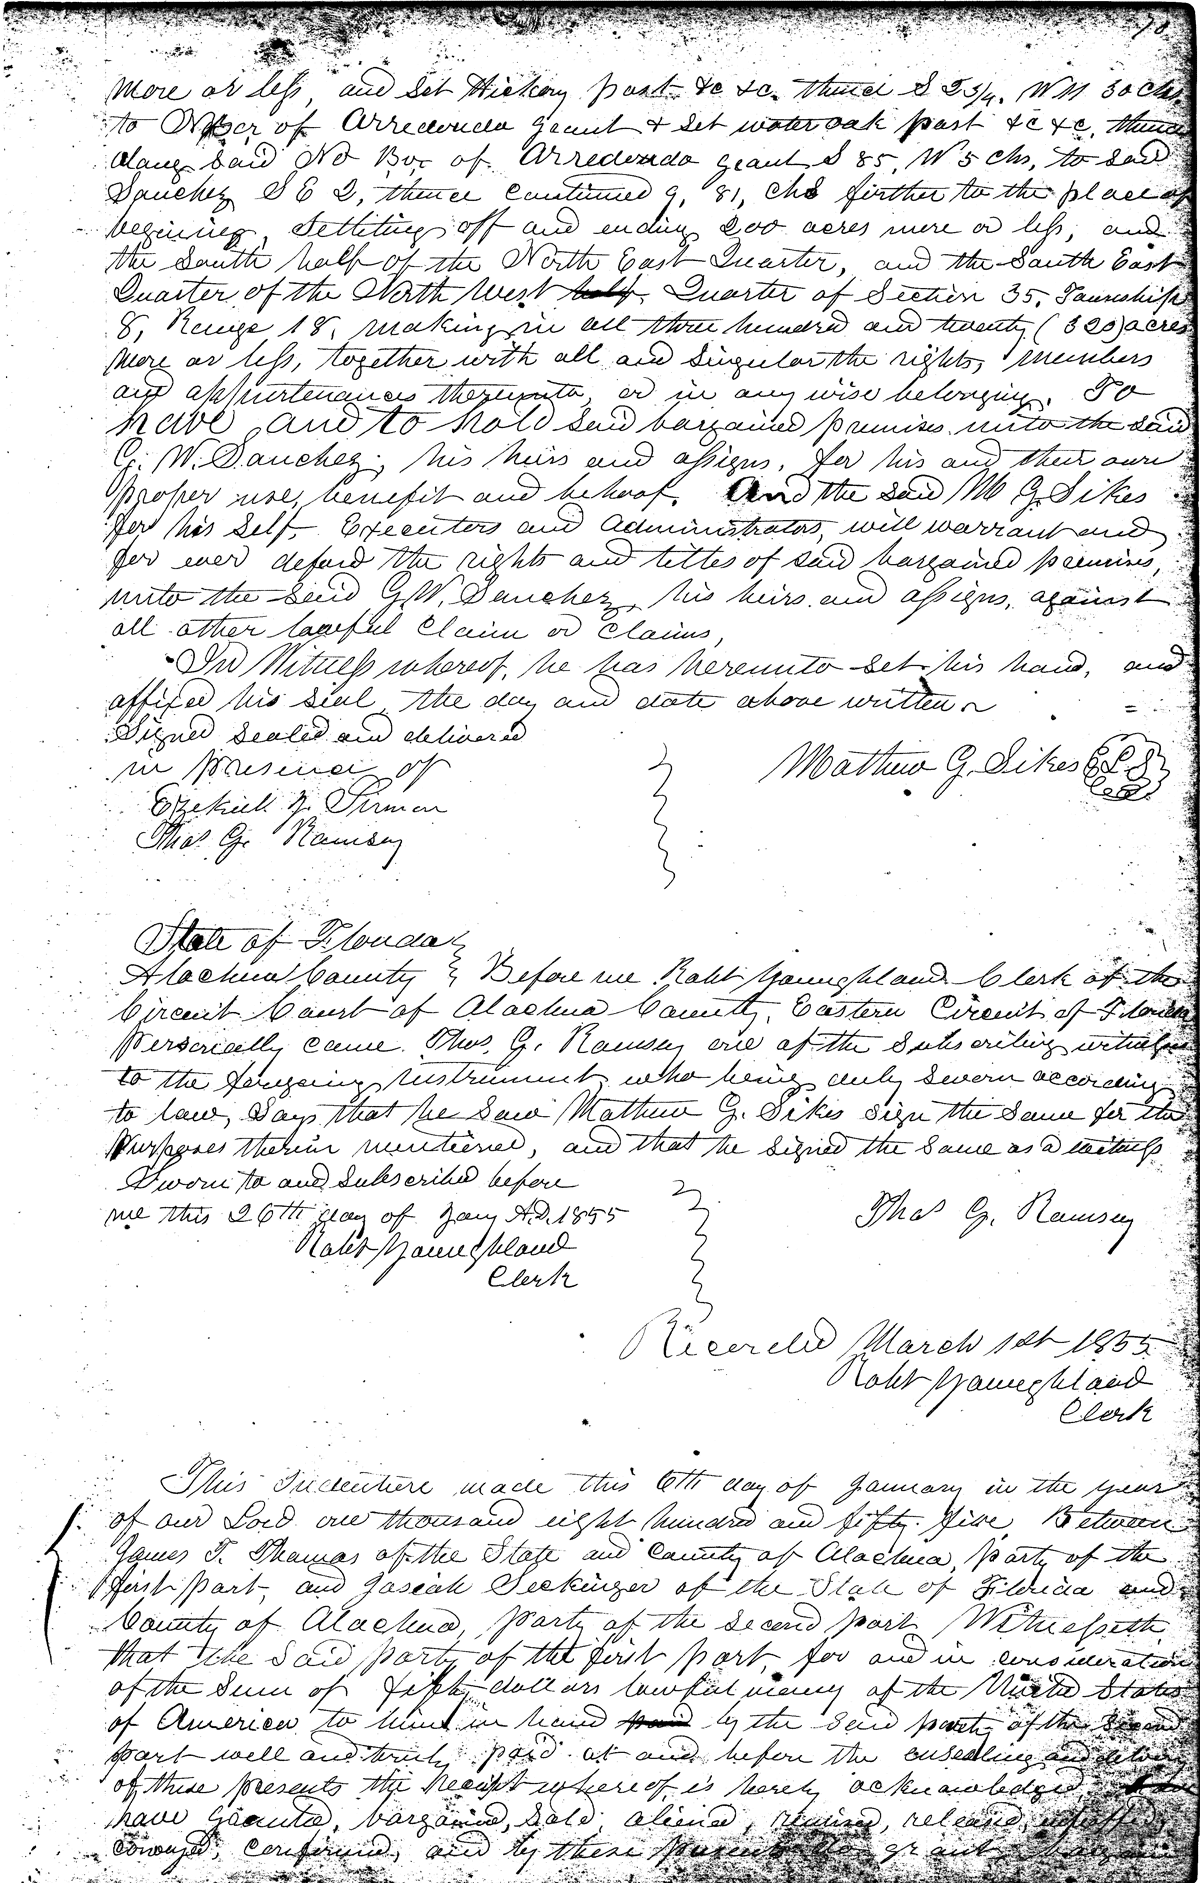 more or less, and Set Hickory post &c &c. thence S 53/4. W 11 30 chs
to N Bor of Arredondo grant & set water oak post &c &c, thence
along said No Bor of Arredondo grant S 85, W 5 chs, to said
Sanchez S E 2, thence continued 9, 81, chs further to the place of
begining, settiting off and ending 200 acres more or less, and
the South half of the North East Quarter, and the South East
Quarter of the North West half Quarter of Section 35, Township
8, Range 18, making in all three hundred and twenty (320) acres
more or less, together with all and singular the rights, members
and appurtenances thereunto, or in any wise belonging. To
have and to hold said bargained premises unto the said
G. W. Sanchez, his heirs and assigns, for his and their own
proper use, benefit and behoof. And the said M G. Sikes
for his self, Executors and administrators, will warrant and
for ever defend the rights and tittes of said bargained premises,
unto the said G. W. Sanchez, his heirs and assigns, against
all other lawful Claim or claims,
In Witness whereof, he has hereunto set his hand, and
affixed his seal, the day and date above written
Signed Sealed and delivered
in presence of
Mathew G. Sikes L S
Ezekiel J. Sirmon
Thos G. Ramsey
State of Florida
Alachua County Before me Robt Youngblood Clerk of the
Circuit Court of Alachua County, Eastern Circuit of Florida
personally came Thos. G. Ramsey one of the subscribing witnesses
to the foregoing instrument who being duly sworn according
to law, says that he saw Mathew G. Sikes sign the same for the
purposes therein mentioned, and that he signed the same as a witness
Sworn to and subscribed before
me this 26th day of Jany A.D. 1855
Thos G. Ramsey
Robt Youngblood
Clerk
Recorded March 1st 1855
Robt Youngblood
Clerk
This Indenture made this 6th day of January in the year
of our Lord one thousand eight hundred and fifty five, Between
James T. Thomas of the State and County of Alachua, party of the
first part, and Josiah Seckinger of the State of Florida and
County of Alachua, party of the second part Witnesseth
that the said party of the first part, for and in consideration
of the sum of fifty dollars lawful money of the United States
of America to him in hand paid by the said party of the second
part well and truly paid at and before the ensealing and delivery
of these presents the receipt whereof is hereby acknowledged,
have granted, bargained, sold, aliened, remised, released, enfeoffed
conveyed, confirmed, and by these presents do grant bargain